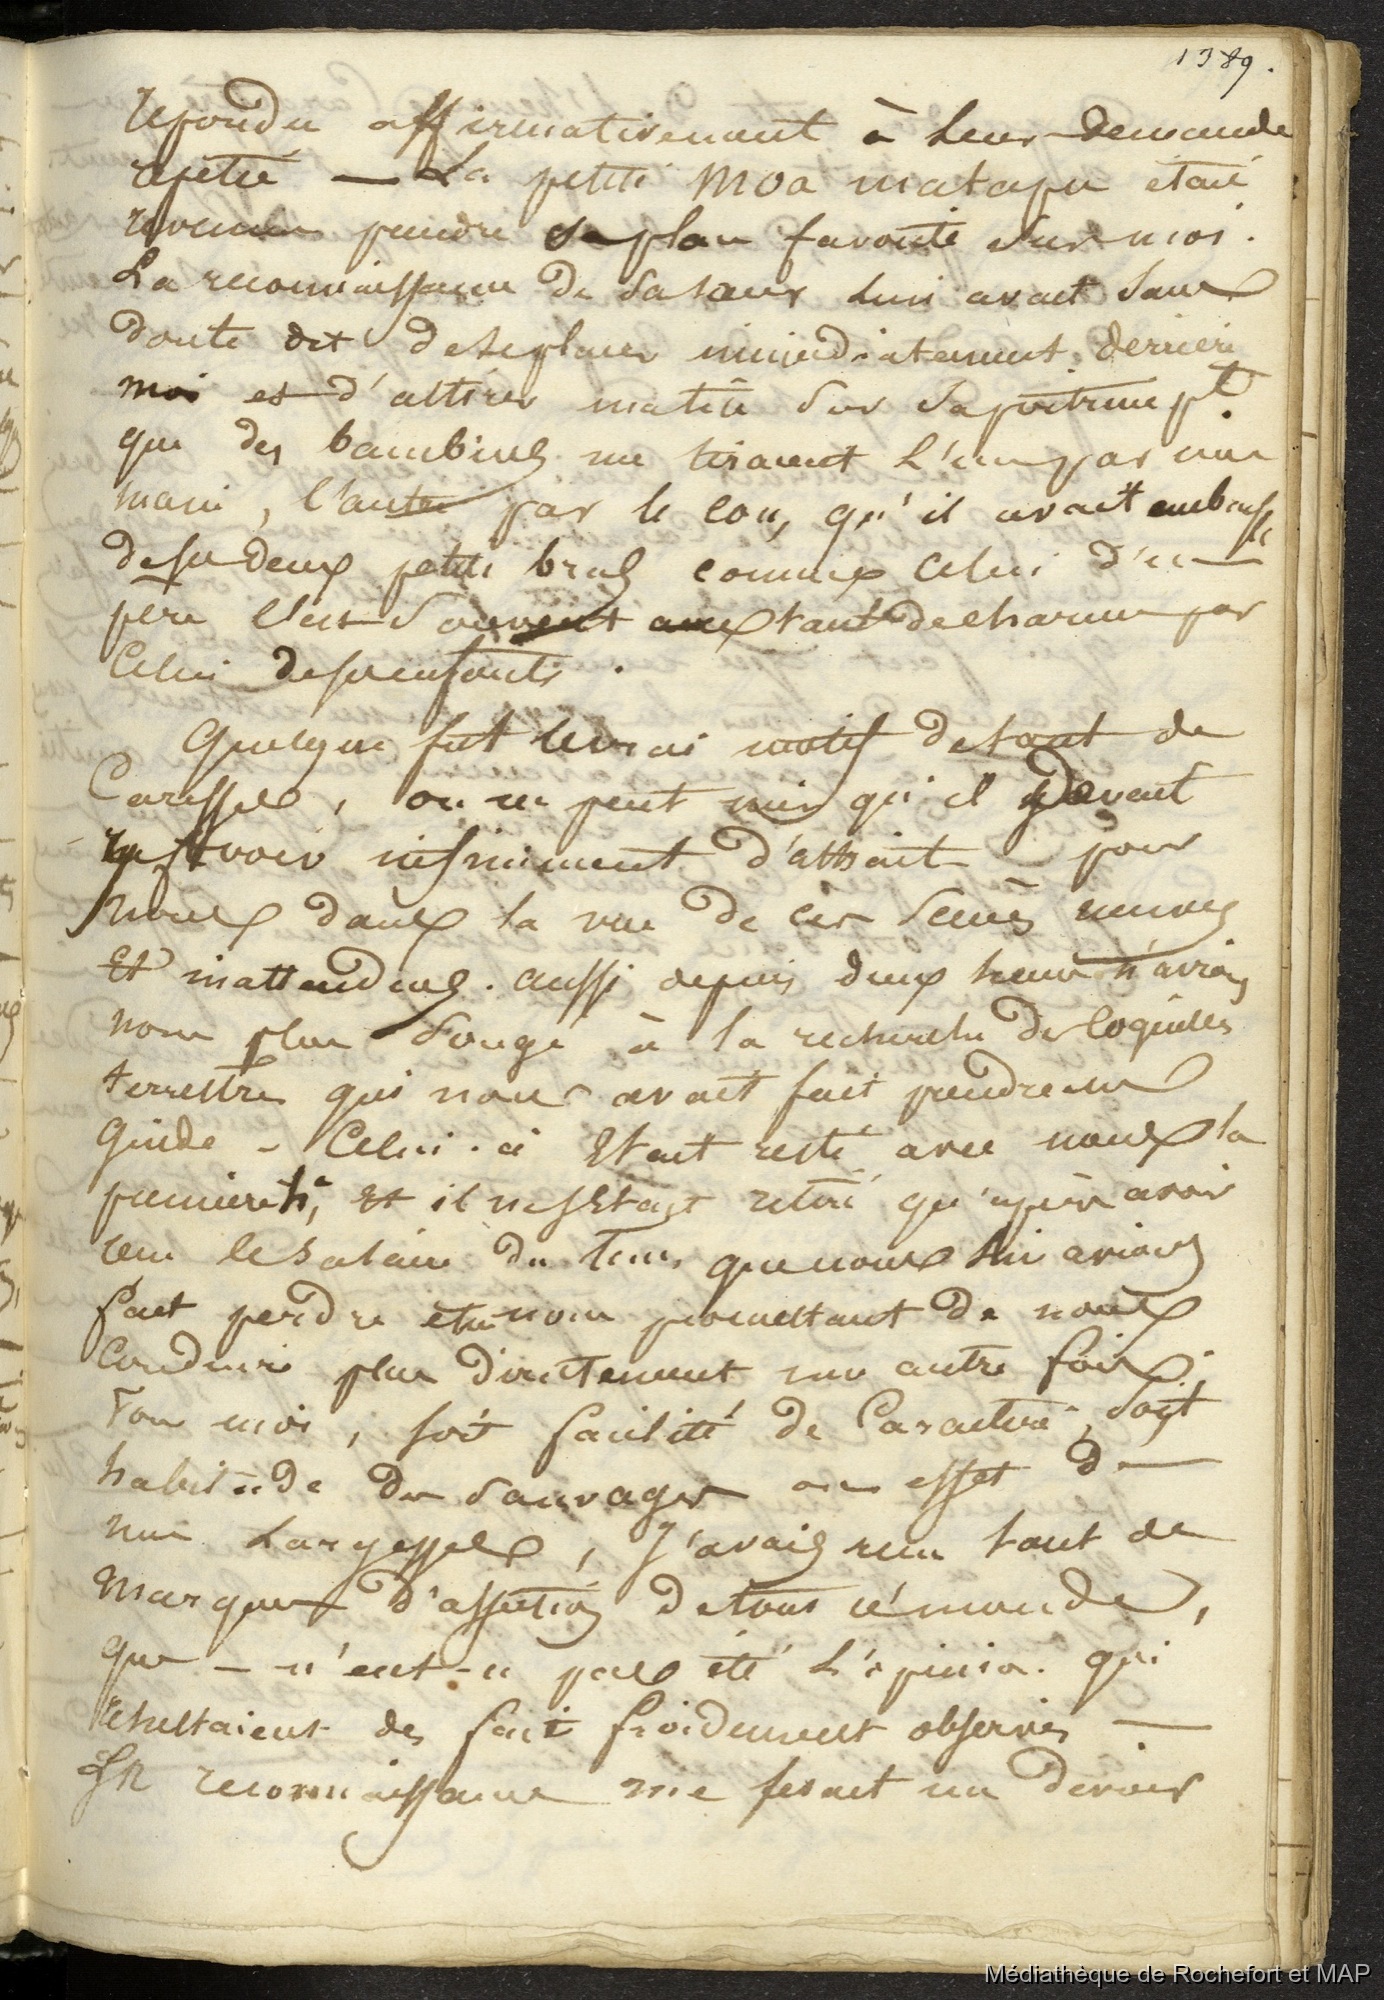 1389.
repondu affirmativement à leur demande
repetée — La petite Moa matapu était
revenue prendre sa place favorite sur moi.
La reconnaissance de sa sœur lui avait sans
doute dit de se placer immédiatement derriere
moi et d'attirer ma tête sur sa poitrine pt.
que des bambins me tiraient l'un par une
main, l'autre par le cou, qu'il avait embrassé
de ses deux petits bras comme celui d'un
pere l'est souvent avec tant de charme par
celui de ses enfants.
Quelque fut le vrai motif de tant de
Caresses, on ne peut nier qu'il devait
y avoir infiniment d'attrait pour
nous dans la vue de ces scènes neuves
Et inattendues. aussi depuis deux heures n'avions
nous plus songé à la recherche de coquilles
terrestres qui nous avait fait prendre un
Guide - Celui-ci Etait resté avec nous la
premiere h, Et il ne s'Etait retiré qu'après avoir
reçu le salaire du tems que nous lui avions
fait perdre et en nous promettant de nous
Conduire plus directement une autre fois.
Pour moi, soit facilité de Caractère, soit
habitude des sauvages ou effet de
mes Largesses, J'avais reçu tant de
Marques d'affection de tout ce monde,
que — n'eut-ce pas été l'opinion qui
resultaient des faits froidement observés —
La reconnaissance me ferait un devoir
Médiathèque de Rochefort et MAP